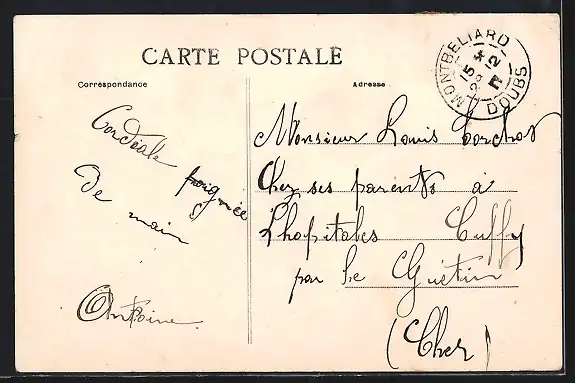 CARTE POSTALE
Correspondance
Adresse
MONTBELIARD
DOUBS
Cordiale poignée
de main
Antoine
Monsieur Louis
Chez ses parents à
L'hopitales Cuffy
par Le Guétin
(Cher)